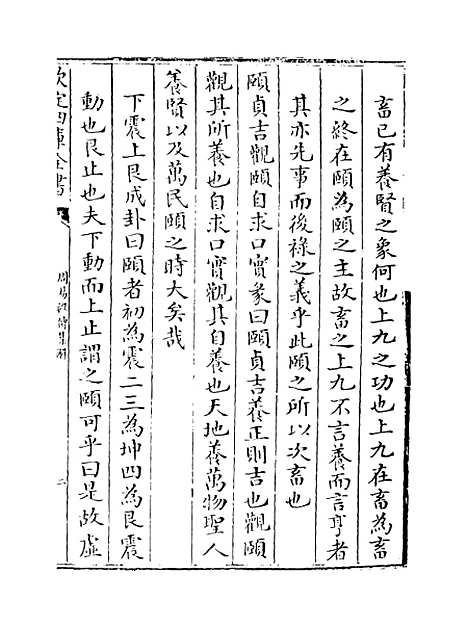 畜已有養賢之象何也上九之功也上九在畜為畜
之終在頤為頤之主故畜之上九不言養而言亨者
其亦先事而後祿之義乎此頤之所以次畜也
頤貞吉觀頤自求口實彖曰頤貞吉養正則吉也觀頤
觀其所養也自求口實觀其自養也天地養萬物聖人
養賢以及萬民頤之時大矣哉
下震上艮成卦曰頤者初為震二三為坤四為艮震
動也艮止也夫下動而上止謂之頤可乎曰是故虛
欽定四庫全書
周易
二